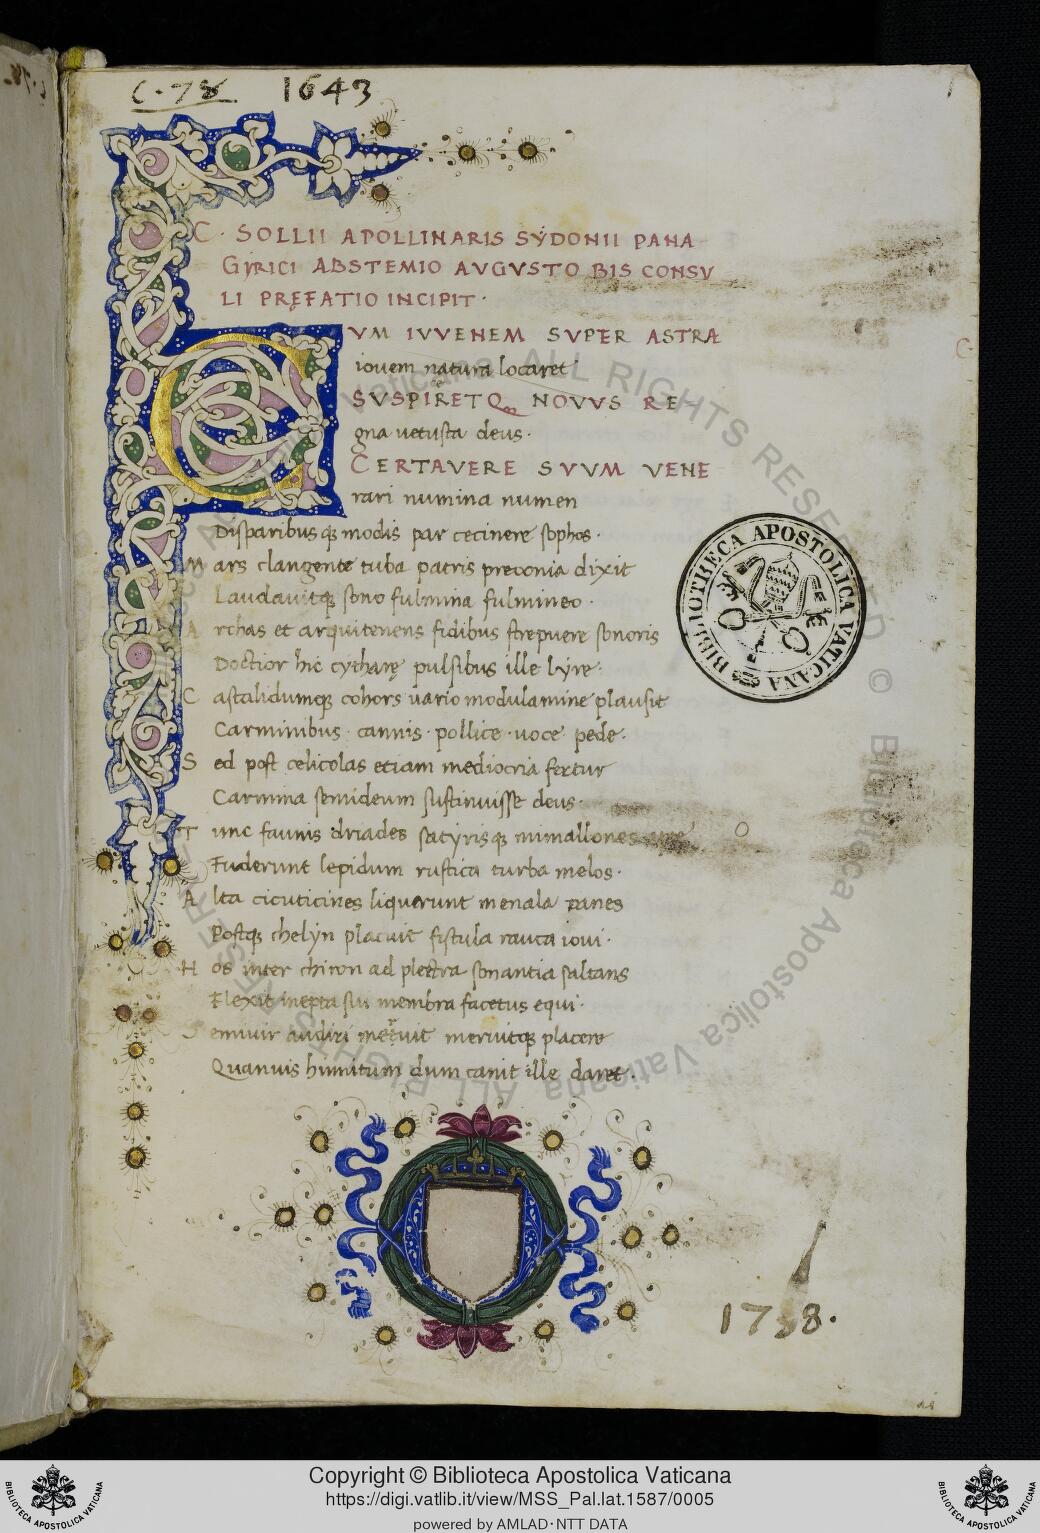 C·78 1643
1
C· SOLLII APOLLINARIS SẎDONII PANA
GẎRICI ABSTEMIO AVGVSTO BIS CONSV
LI PRĘFATIO INCIPIT·
CVM IVVENEM SVPER ASTRA
iovem natura locaret
SVSPIRETQ NOVVS RE
gna vetusta deus·
CERTAVERE SVVM VENE
rari numina numen
Disparibusq; modis par cecinere sophos·
Mars clangente tuba patris preconia dixit
Laudavitq; sono fulmina fulmineo·
Archas et arquitenens fidibus strepuere sonoris
Doctior hic cytharę pulsibus ille lyre·
Castalidumq; cohors vario modulamine plausit
Carminibus· cannis· pollice· voce pede·
Sed post celicolas etiam mediocria fertur
Carmina semideum sustinuisse deus·
Tunc faunis driades satyrisq; mimallones
Fuderunt lepidum rustica turba melos·
Alta cicuticines liquerunt menala panes
Postq; chelyn placuit fistula rauca iovi·
Hos inter chiron ad plectra sonantia saltans
Flexit inepta sui membra facetus equi·
Semivir audiri meruit meruitq; placere
Quanvis hinnitum dum canit ille daret·
BIBLIOTHECA APOSTOLICA VATICANA
1738·
Biblioteca Apostolica Vaticana ALL RIGHTS RESERVED ©
Copyright © Biblioteca Apostolica Vaticana
https://digi.vatlib.it/view/MSS_Pal.lat.1587/0005
powered by AMLAD·NTT DATA
BIBLIOTECA APOSTOLICA VATICANA
BIBLIOTECA APOSTOLICA VATICANA